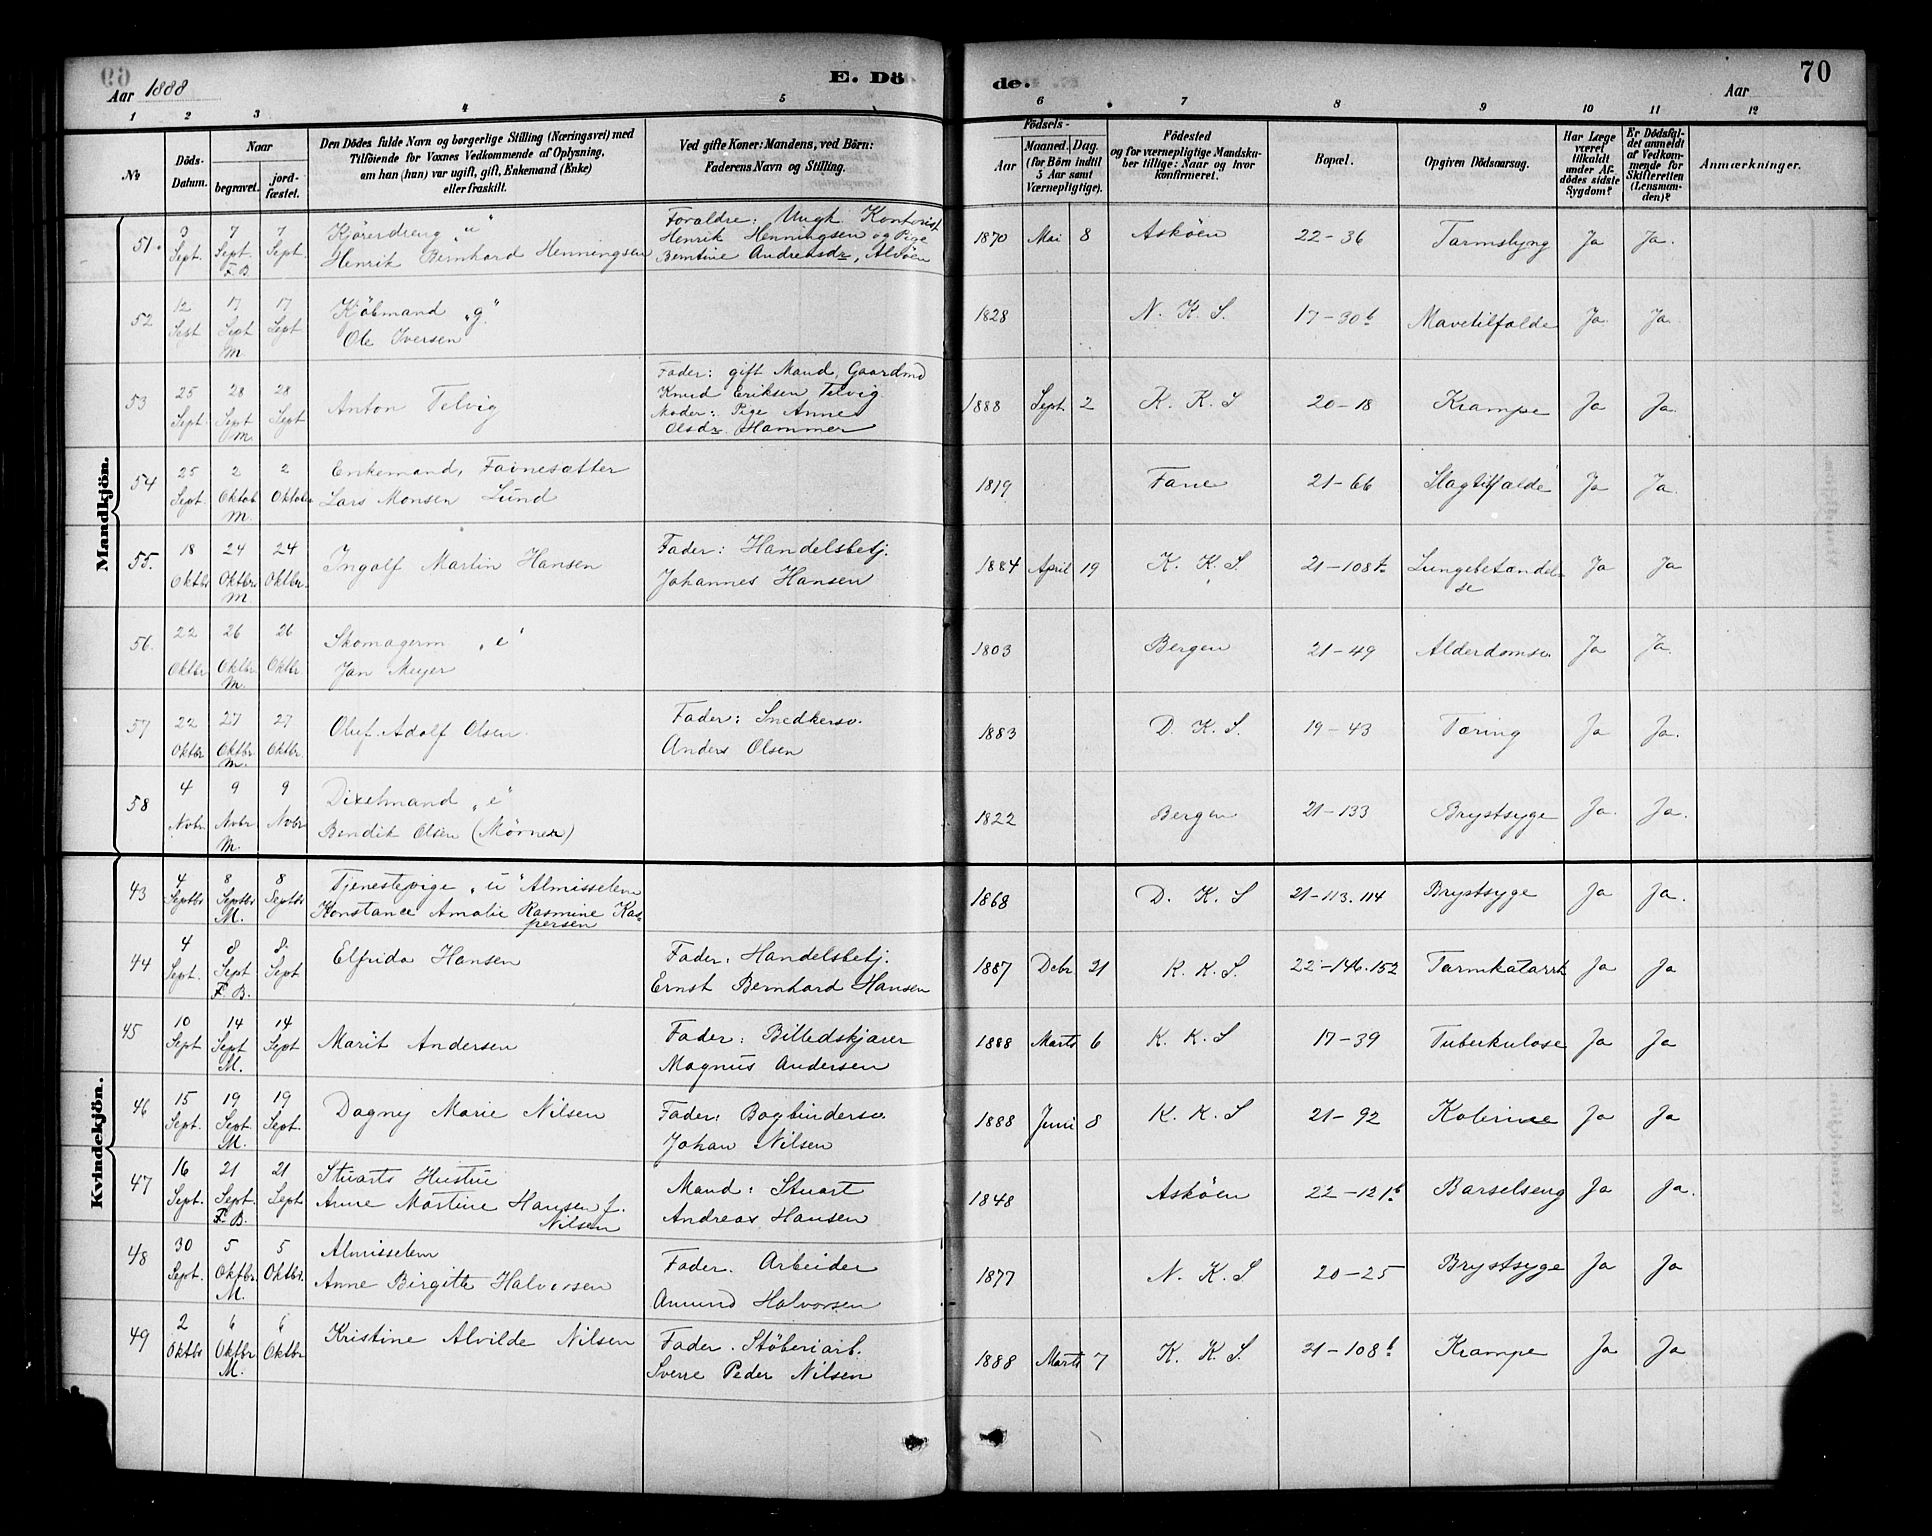 Aar 1888
E. Dö
de.
70
Aar
1 2 3 4 5 6 7 8 9 10 11 12
No
Döds-Datum.
Naar
begravet.
jordfæstet.
Den Dödes fulde Navn og borgerlige Stilling (Næringsvei) med
Tilföiende for Voxnes Vedkommende af Oplysning,
om han (hun) var ugift, gift, Enkemand (Enke)
eller fraskilt.
Ved gifte Koner: Mandens, ved Börn:
Faderens Navn og Stilling.
Födsels-
Aar
Maaned. Dag.
(for Börn indtil
5 Aar samt
Værnepligtige).
Födested
og for værnepligtige Mandska-
ber tillige: Naar og hvor
konfirmeret.
Bopæl.
Opgiven Dödsaarsag.
Har Læge
været
tilkaldt
under Af-
dödes sidste
Sygdom?
Er Dödsfal-
det anmeldt
af Vedkom-
mende for
Skifteretten
(Lensman-
den)?
Anmærkninger.
Mandkjön.
51. 3 Sept. 7 Sept. F.B. 7 Sept. Kjörerdreng "u"
Henrik Bernhard Henningsen
Foraldre: Ungk. Kontorist
Henrik Henningsen og Pige
Berntine Andreasdr, Alvöen
1870 Mai 8 Asköen 22-36 Tarmslyng Ja Ja.
52 12 Sept 17 Sept M 17 Sept Kjöbmand "g"
Ole Iversen
1828 N. K. S. 17-30b Mavetilfalde Ja Ja.
53 25 Sept. 28 Sept M. 28 Sept Anton Telvig
Fader: gift Mand, Gaardmd
Knud Eriksen Telvig.
Moder: Pige Anne
Olsdr. Hammer
1888 Sept 2 K. K. S 20-18 Krampe Ja Ja.
54 25 Sept 2 Oktob M. 2 Oktober Enkemand,
Lars Monsen Lund
1819 Fane 21-66 Slagtilfalde Ja Ja.
55. 18 Oktbr 24 Oktbr M 24 Oktbr. Ingolf Martin Hansen
Fader: Handelsbetj.
Johannes Hansen
1884 April 19 K. K. S 21-108b Lungebetændel-
se Ja Ja
56. 22 Oktbr 26 Oktbr M. 26 Oktbr Skomagerm "e"
Jan Meyer
1803 Bergen 21-49 Alderdomsv. Ja Ja.
57 22 Oktbr 27 Oktbr M. 27 Oktbr. Oluf Adolf Olsen
Fader: Snedkersv.
Anders Olsen
1883 D. K. S. 19-43 Tæring Ja Ja.
58 4 Novbr 9 Novbr M. 9 Novbr Dixelmand "e"
Bendik Olsen (Mörner)
1822 Bergen 21-133 Brystsyge Ja. Ja.
Kvindekjön.
43 4 Septbr 8 Septbr M. 8 Septbr Tjenestepige "u" Almisselem
Konstance Amalie Rasmine Kas-
persen
1868 D. K. S 21-113.114 Brystsyge Ja Ja.
44 4 Sept. 8 Sept F. B. 8. Sept Elfrida Hansen
Fader: Handelsbetj.
Ernst Bernhard Hansen
1887 Debr 21 K. K. S. 22-146.152 Tarmkatarrh Ja Ja
45 10 Sept 14 Sept M. 14 Sept Marit Andersen
Fader: Billedskjærer
Magnus Andersen
1888 Marts 6 K. K. S 17-39 Tuberkulose Ja Ja
46 15 Sept. 19 Sept. M. 19 Sept. Dagny Marie Nilsen
Fader: Bogbindersv
Johan Nilsen
1888 Juni 8 K. K. S 21-92 Kolerine Ja Ja
47 16 Sept. 21 Sept. F. B. 21 Sept Stuarts Hustru
Anne Martine Hansen f.
Nilsen
Mand: Stuart
Andreas Hansen
1848 Asköen 22-121b Barselseng Ja Ja.
48 30 Sept. 5 Oktbr. M. 5 Oktbr. Almisselem
Anne Birgitte Halvorsen
Fader. Arbeider
Amund Halvorsen
1877 N. K. S 20-25 Brystsyge Ja Ja
49 2 Oktbr 6 Oktbr M. 6 Oktbr Kristine Alvilde Nilsen
Fader. Stöberiarb.
Sverre Peder Nilsen
1888 Marts 7 K. K. S. 21-108b Krampe Ja Ja